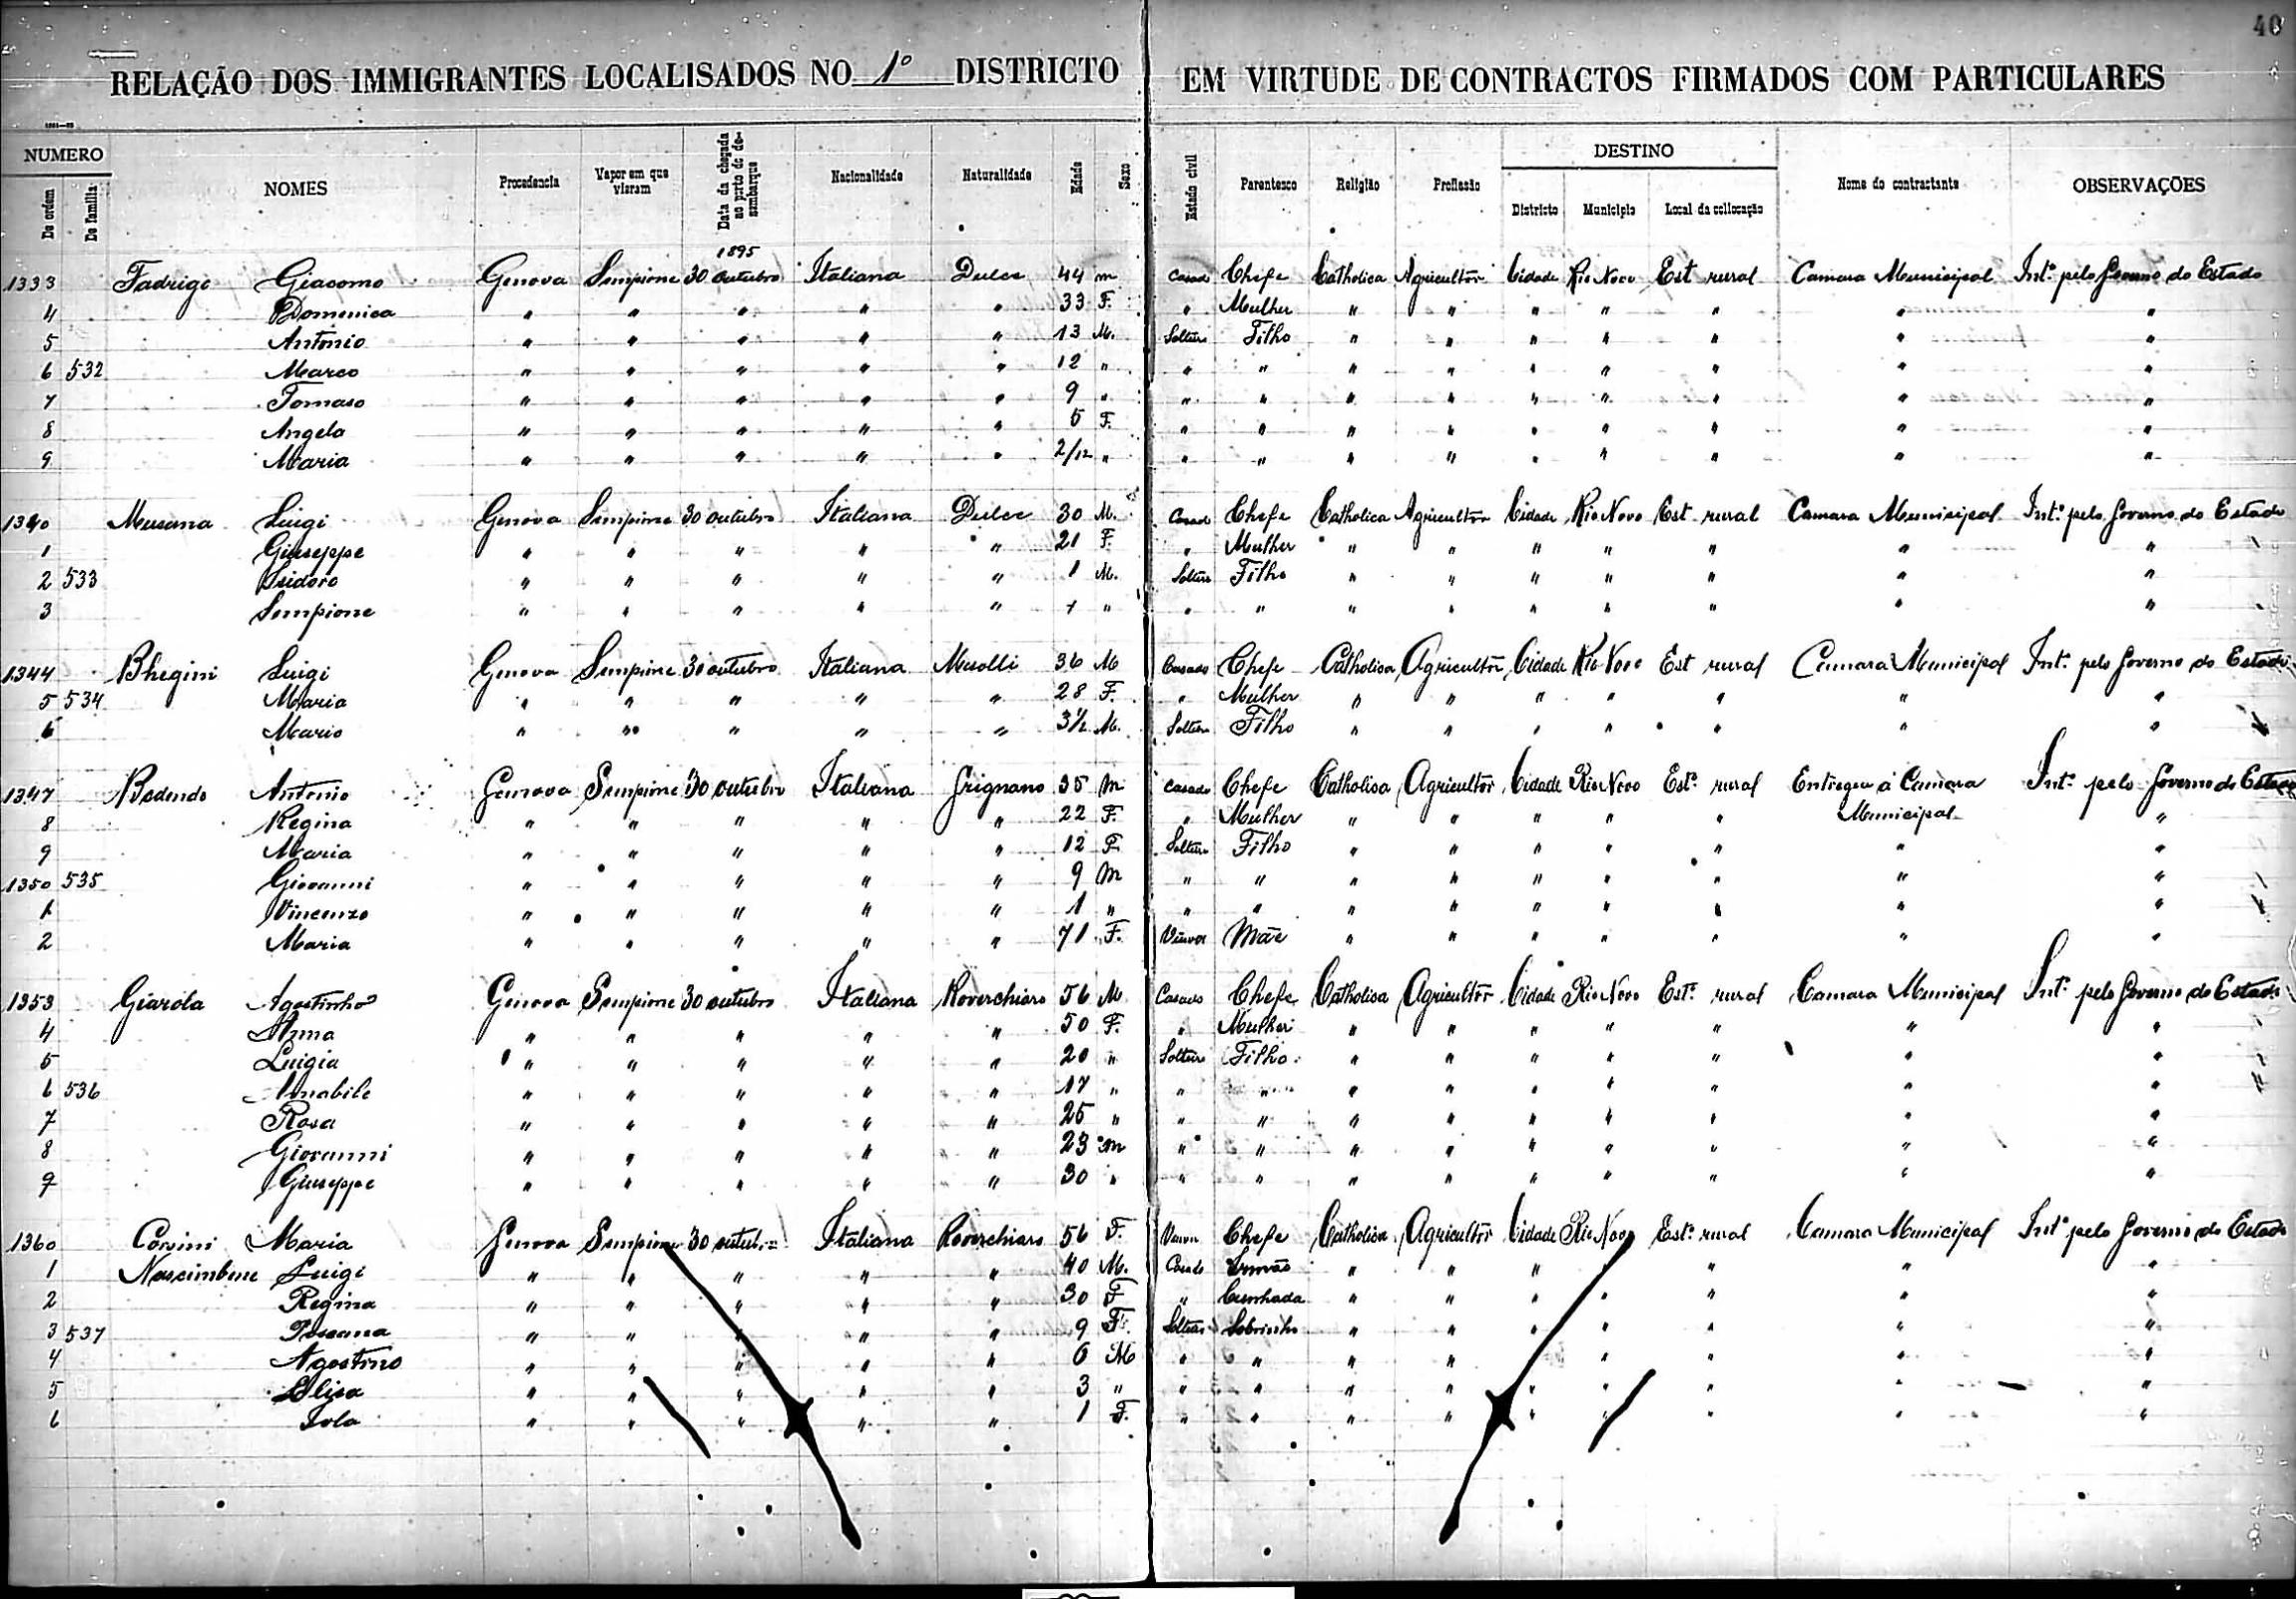 40
RELAÇÃO DOS IMMIGRANTES LOCALISADOS NO 1º DISTRICTO EM VIRTUDE DE CONTRACTOS FIRMADOS COM PARTICULARES
NUMERO DESTINO
De ordem De familia NOMES Procedencia Vapor em que vieram Data da chegada ao porto de desembarque Nacionalidade Naturalidade Edade Sexo Estado civil Parentesco Religião Profissão Districto Municipio Local da collocação Nome do contractante OBSERVAÇÕES
1895
1333 Fadrigo Giacomo Genova Sempione 30 outubro Italiana Dulce 44 m Casad Chefe Catholica Agricultor Cidade Rio Novo Est rural Camara Municipal Intº pelo Governo do Estado
4 Domenica " " " " " 33 F. " Mulher " " " " " " "
5 Antonio " " " " " 13 M. Solteiro Filho " " " " " " "
6 532 Marco " " " " " 12 " " " " " " " " " "
7 Tomaso " " " " " 9 " " " " " " " " " "
8 Angela " " " " " 5 F. " " " " " " " " "
9 Maria " " " " " 2/12 " " " " " " " " " "
1340 Luigi Genova Sempione 30 outubro Italiana Dulce 30 M. Casad Chefe Catholica Agricultor Cidade Rio Novo Est rural Camara Municipal Intº pelo Governo do Estado
1 Giuseppe " " " " " 21 F. " Mulher " " " " " " "
2 533 Isidoro " " " " " 1 M. Solteiro Filho " " " " " " "
3 Sempione " " " " " " " " " " " " " " "
1344 Bhegini Luigi Genova Sempione 30 outubro Italiana 36 M Casado Chefe Catholica Agricultor Cidade Rio Novo Est rural Camara Municipal Intº pelo Governo do Estado
5 534 Maria " " " " " 28 F. " Mulher " " " " " " "
6 Mario " " " " " 3½ M. Solteiro Filho " " " " " " "
1347 Antonio Genova Sempione 30 outubro Italiana Grignano 35 m Casado Chefe Catholica Agricultor Cidade Rio Novo Estº rural Entregue á Camara Intº pelo Governo do Estado
8 Regina " " " " " 22 F. " Mulher " " " " " Municipal "
9 Maria " " " " " 12 F. Solteiro Filho " " " " " " "
1350 535 Giovanni " " " " " 9 m " " " " " " " " "
1 Vincenzo " " " " " 1 " " " " " " " " " "
2 Maria " " " " " 71 F. Viuva Mãe " " " " " " "
1353 Giarola Agostinho Genova Sempione 30 outubro Italiana Roverchiaro 56 M Casado Chefe Catholica Agricultor Cidade Rio Novo Estº rural Camara Municipal Intº pelo Governo do Estado
4 Anna " " " " " 50 F. " Mulher " " " " " " "
5 Luigia " " " " " 20 " Solteiro Filho " " " " " " "
6 536 Amabile " " " " " 17 " " " " " " " " " "
7 Rosa " " " " " 25 " " " " " " " " " "
8 Giovanni " " " " " 23 m " " " " " " " " "
9 Giuseppe " " " " " 30 " " " " " " " " " "
1360 Corsini Maria Genova Sempione 30 outubro Italiana Roverchiaro 56 F. Viuva Chefe Catholica Agricultor Cidade Rio Novo Estº rural Camara Municipal Intº pelo Governo do Estado
1 Nascimbene Luigi " " " " " 40 M. Casado Irmão " " " " " "
2 Regina " " " " " 30 F " Cunhada " " " " " " "
3 537 " " " " " 9 F. Solteiro Sobrinho " " " " " "
4 Agostino " " " " " 6 M " " " " " " " "
5 Elisa " " " " " 3 " " " " " " " " " "
6 Iola " " " " " 1 F. " " " " " " " " "